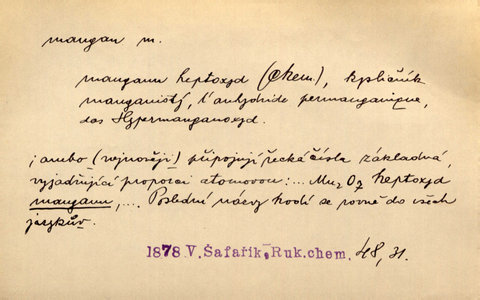 mangan m.
manganu heptoxyd (chem.), kysličník
manganistý, l'anhydride permanganique,
das Hypermanganoxyd.
; anebo (nejnověji) připojují řecká čísla základná,
vyjadřující proporci atomovou: ... Mn2 O7 heptoxyd
manganu, ... Poslední názvy hodí se rovně do všech
jazykův.
1878 V. Šafařík, Ruk. chem. 48, 31.